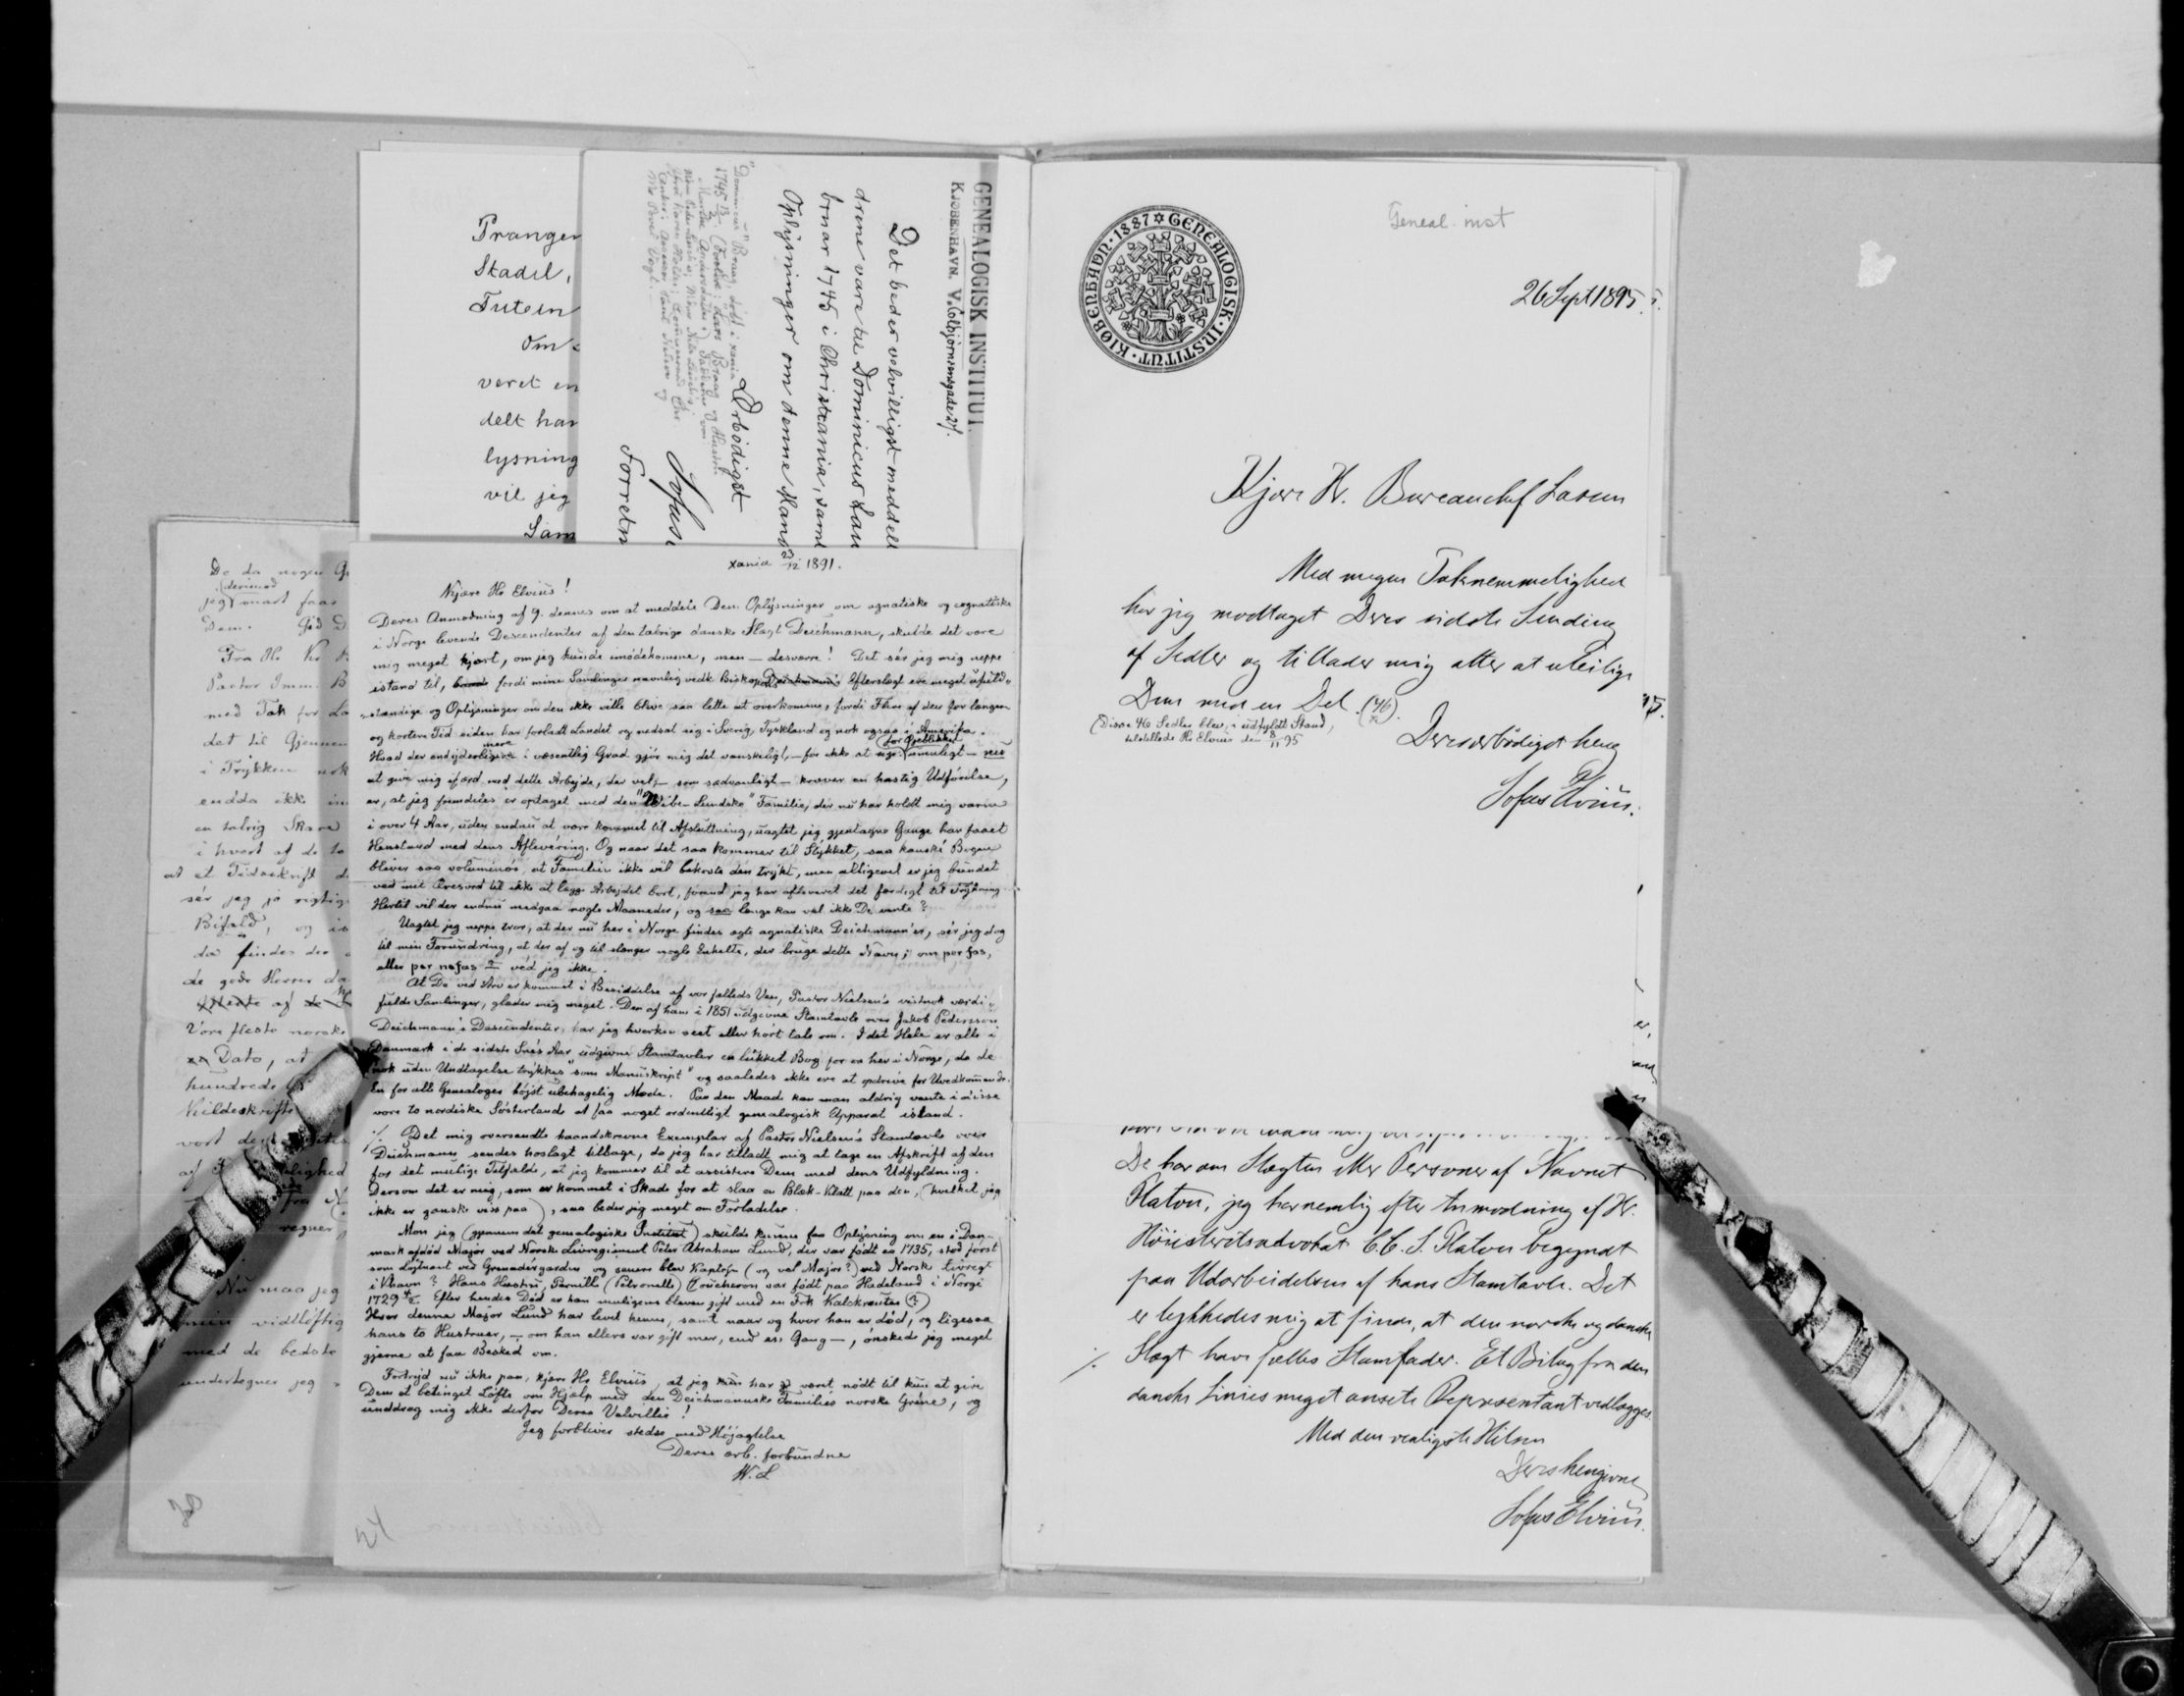 Pranger
Stadil,
Tutein
Om
veret en
delt har
lysning
vil jeg
Sam
GENEALOGISK INSTITUT.
KJØBENHAVN. V. Colbjörnsensgade 27.
Det bedes velvilligst meddelt
drene vare til Dominicus Lau
bruar 1745 i Christiania, samt
Oplysninger om denne Mands
Ærbødigst
Sofus
Forretn
De da nogen
(derimod
jeg snart faar
Dem. God
Fra Hr
Pastor Imm. B
med Tak for La
det til Gjennem
i Trykken nok
endda ikke
en talrig Skare
i hvert af de to
at et Tidsskrift
sér jeg jo rigtig
Bifald, og
da findes der
de gode Herrer da
Vore fleste norske
Dato, at
hundrede
Kildeskrifte
regner
Nu maa jeg
min vidtløftig
med de bedste
undertegner jeg
xania 2/12 1891.
Kjære Hr Elvius!
Deres Anmodning af 9. dennes om at meddele Dem Oplysninger om agnatiske og cognatiske
i Norge levende Descendenter af den talrige danske Slægt Deichmann, skulde det være
mig meget kjært, om jeg kunde imødekomme, men – desværre! Det sér jeg mig neppe
istand til, fordi mine Samlinger navnlig vedk. Biskop Deichmann's Efterslægt ere meget ufuld-
stændige og Oplysninger om den ikke ville blive saa lette at overkomme, fordi Flere af den for længere
og kortere Tid siden har forladt Landet og nedsat sig i Sverig, Tyskland og nok ogsaa i Amerika.
Hvad der endyderligere i væsentlig Grad gjør mig det vanskeligt, – for ikke at sige for Øieblikket umuligt – nu
at give mig ifærd med dette Arbejde, der vel – som sædvanligt – kræver en hastig Udførelse,
er, at jeg fremdeles er optaget med den "Wibe-Lundske" Familie, der nu har holdt mig varm
i over 4 Aar, uden endnu at være kommet til Afslutning, uagtet jeg gjentagne Gange har faaet
Henstand med dens Aflevering. Og naar det saa kommer til Stykket, saa kanské Bogen
bliver saa voluminøs, at Familien ikke vil bekoste den trykt, men alligevel er jeg bundet
ved mit Æresord til ikke at lægge Arbejdet bort, førend jeg har afleveret det færdigt til Trykning.
Hertil vil der endnu medgaa nogle Maaneder, og saa længe kan vel ikke De vente?
Uagtet jeg neppe tror, at der nu her i Norge findes ægte agnatiske Deichmann'er, sér jeg dog
til min Forundring, at der af og til slænger nogle Enkelte, der bruge dette Navn; om per fas,
eller per nefas véd jeg ikke.
At De ved Arv er kommet i Besiddelse af vor fælleds Ven, Pastor Nielsen's vistnok værdi-
fulde Samlinger, glæder mig meget. Den af ham i 1851 udgivne Stamtavle over Jakob Pedersson
Deichmann's Descendenter, har jeg hverken seet eller hørt tale om. I det Hele er alle i
Danmark i de sidste Snés Aar udgivne Stamtavler en lukket Bog for os her i Norge, da de
nok uden Undtagelse trykkes "som Manuskript" og saaledes ikke ere at opdrive for Uvedkommende.
En for alle Genealoger højst ubehagelig Mode. Paa den Maade kan man aldrig vente i disse
vore to nordiske Søsterlande at faa noget ordentligt genealogisk Apparat istand.
⁒ Det mig oversendte haandskrevne Exemplar af Pastor Nielsen's Stamtavle over
Deichmann sendes hoslagt tilbage, da jeg har tilladt mig at tage en Afskrift af den
for det mulige Tilfælde, at jeg kommer til at assistere Dem med dens Udfyldning.
Dersom det er mig, som er kommet i Skade for at slaa en Blæk-Klatt paa den, (hvilket jeg
ikke er ganske viss paa), saa beder jeg meget om Forladelse.
Mon jeg (gjennem det genealogiske Institut) skulde kunne faa Oplysning om en i Dan-
mark afdød Major ved Norske Livregiment Peter Abraham Lund, der var født ca 1735, stod først
som Løjtnant ved Grenadergarden og senere blev Kaptejn (og vel Major?) ved Norsk Livregt
i Khavn? Hans Hustru, Pernille (Petronelle) Coucheron var født paa Hedeland i Norge
1729. Efter hendes Død er han muligens bleven gift med en Frk Kalckreuter (?)
Hvor denne Major Lund har levet henne, samt naar og hvor han er død, og ligesaa
hans to Hustruer, – om han ellers var gift mer, end én Gang –, ønskede jeg meget
gjerne at faa Besked om.
Fortryd nu ikke paa, kjære Hr Elvius, at jeg kun har været nødt til kun at give
Dem et betinget Løfte om Hjælp med den Deichmannske Familiés norske Gréne, og
unddrag mig ikke derfor Deres Velvillie!
Jeg forbliver stedse med Højagtelse
Deres ærb. forbundne
W. L
Geneal. inst
KJØBENHAVN · 1887 ✡ GENEALOGISK · INSTITUT ·
26 Sept 1895.
Kjære Hr. Bureauchef Lassen
Med megen Taknemmelighed
har jeg modtaget Deres sidste Sending
af Sedler og tillader mig atter at uleilige
Dem med en Del. (46)
(Disse 46 Sedler blev, i udfyldt Stand,
tilstillede Hr Elvius den 8/11 95
Deres ærbødigst heng
Sofus Elvius.
De har om Slægten eller Personer af Navnet
Platou, jeg har nemlig efter Anmodning af Hr.
Höiesteretsadvokat C. C. S. Platou begyndt
paa Udarbeidelsen af hans Stamtavle. Det
er lykkedes mig at finde, at den norske og danske
⁒ Slægt have fælles Stamfader. Et Bilag fra den
danske Linies meget ansete Repræsentant vedlægges.
Med den venligste Hilsen
Deres hengivne
Sofus Elvius.